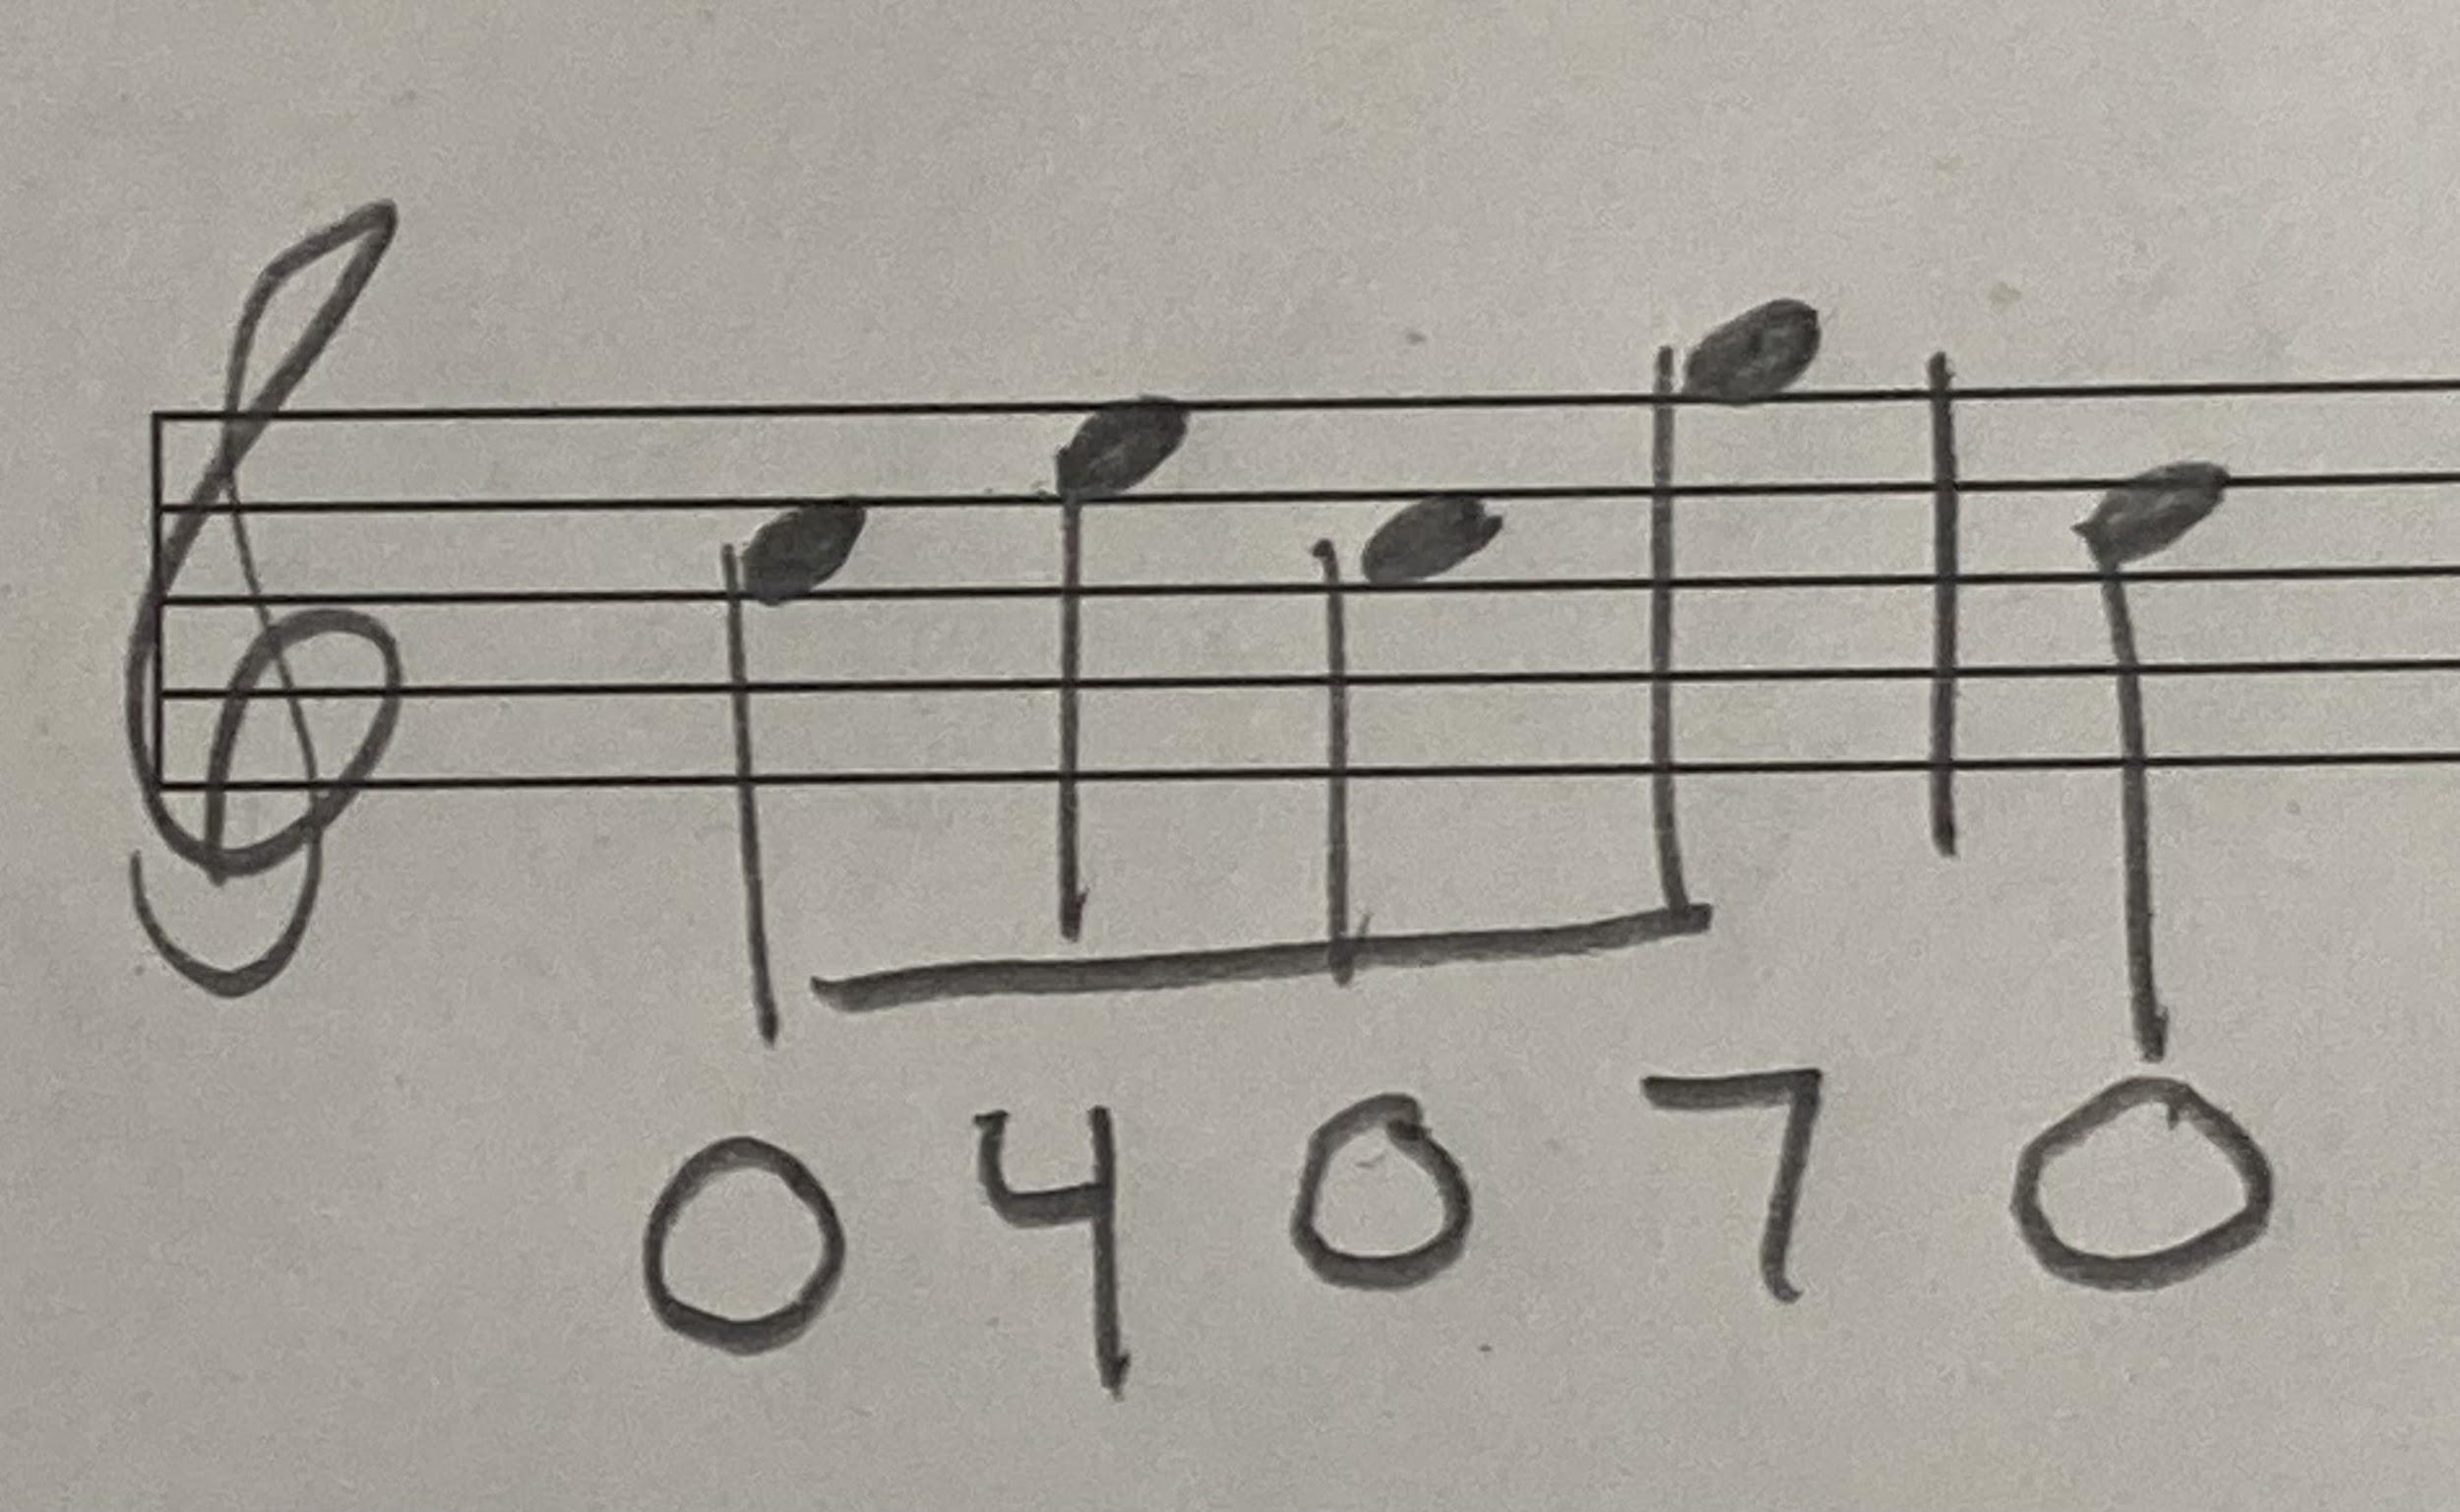 0 4 0 7 0